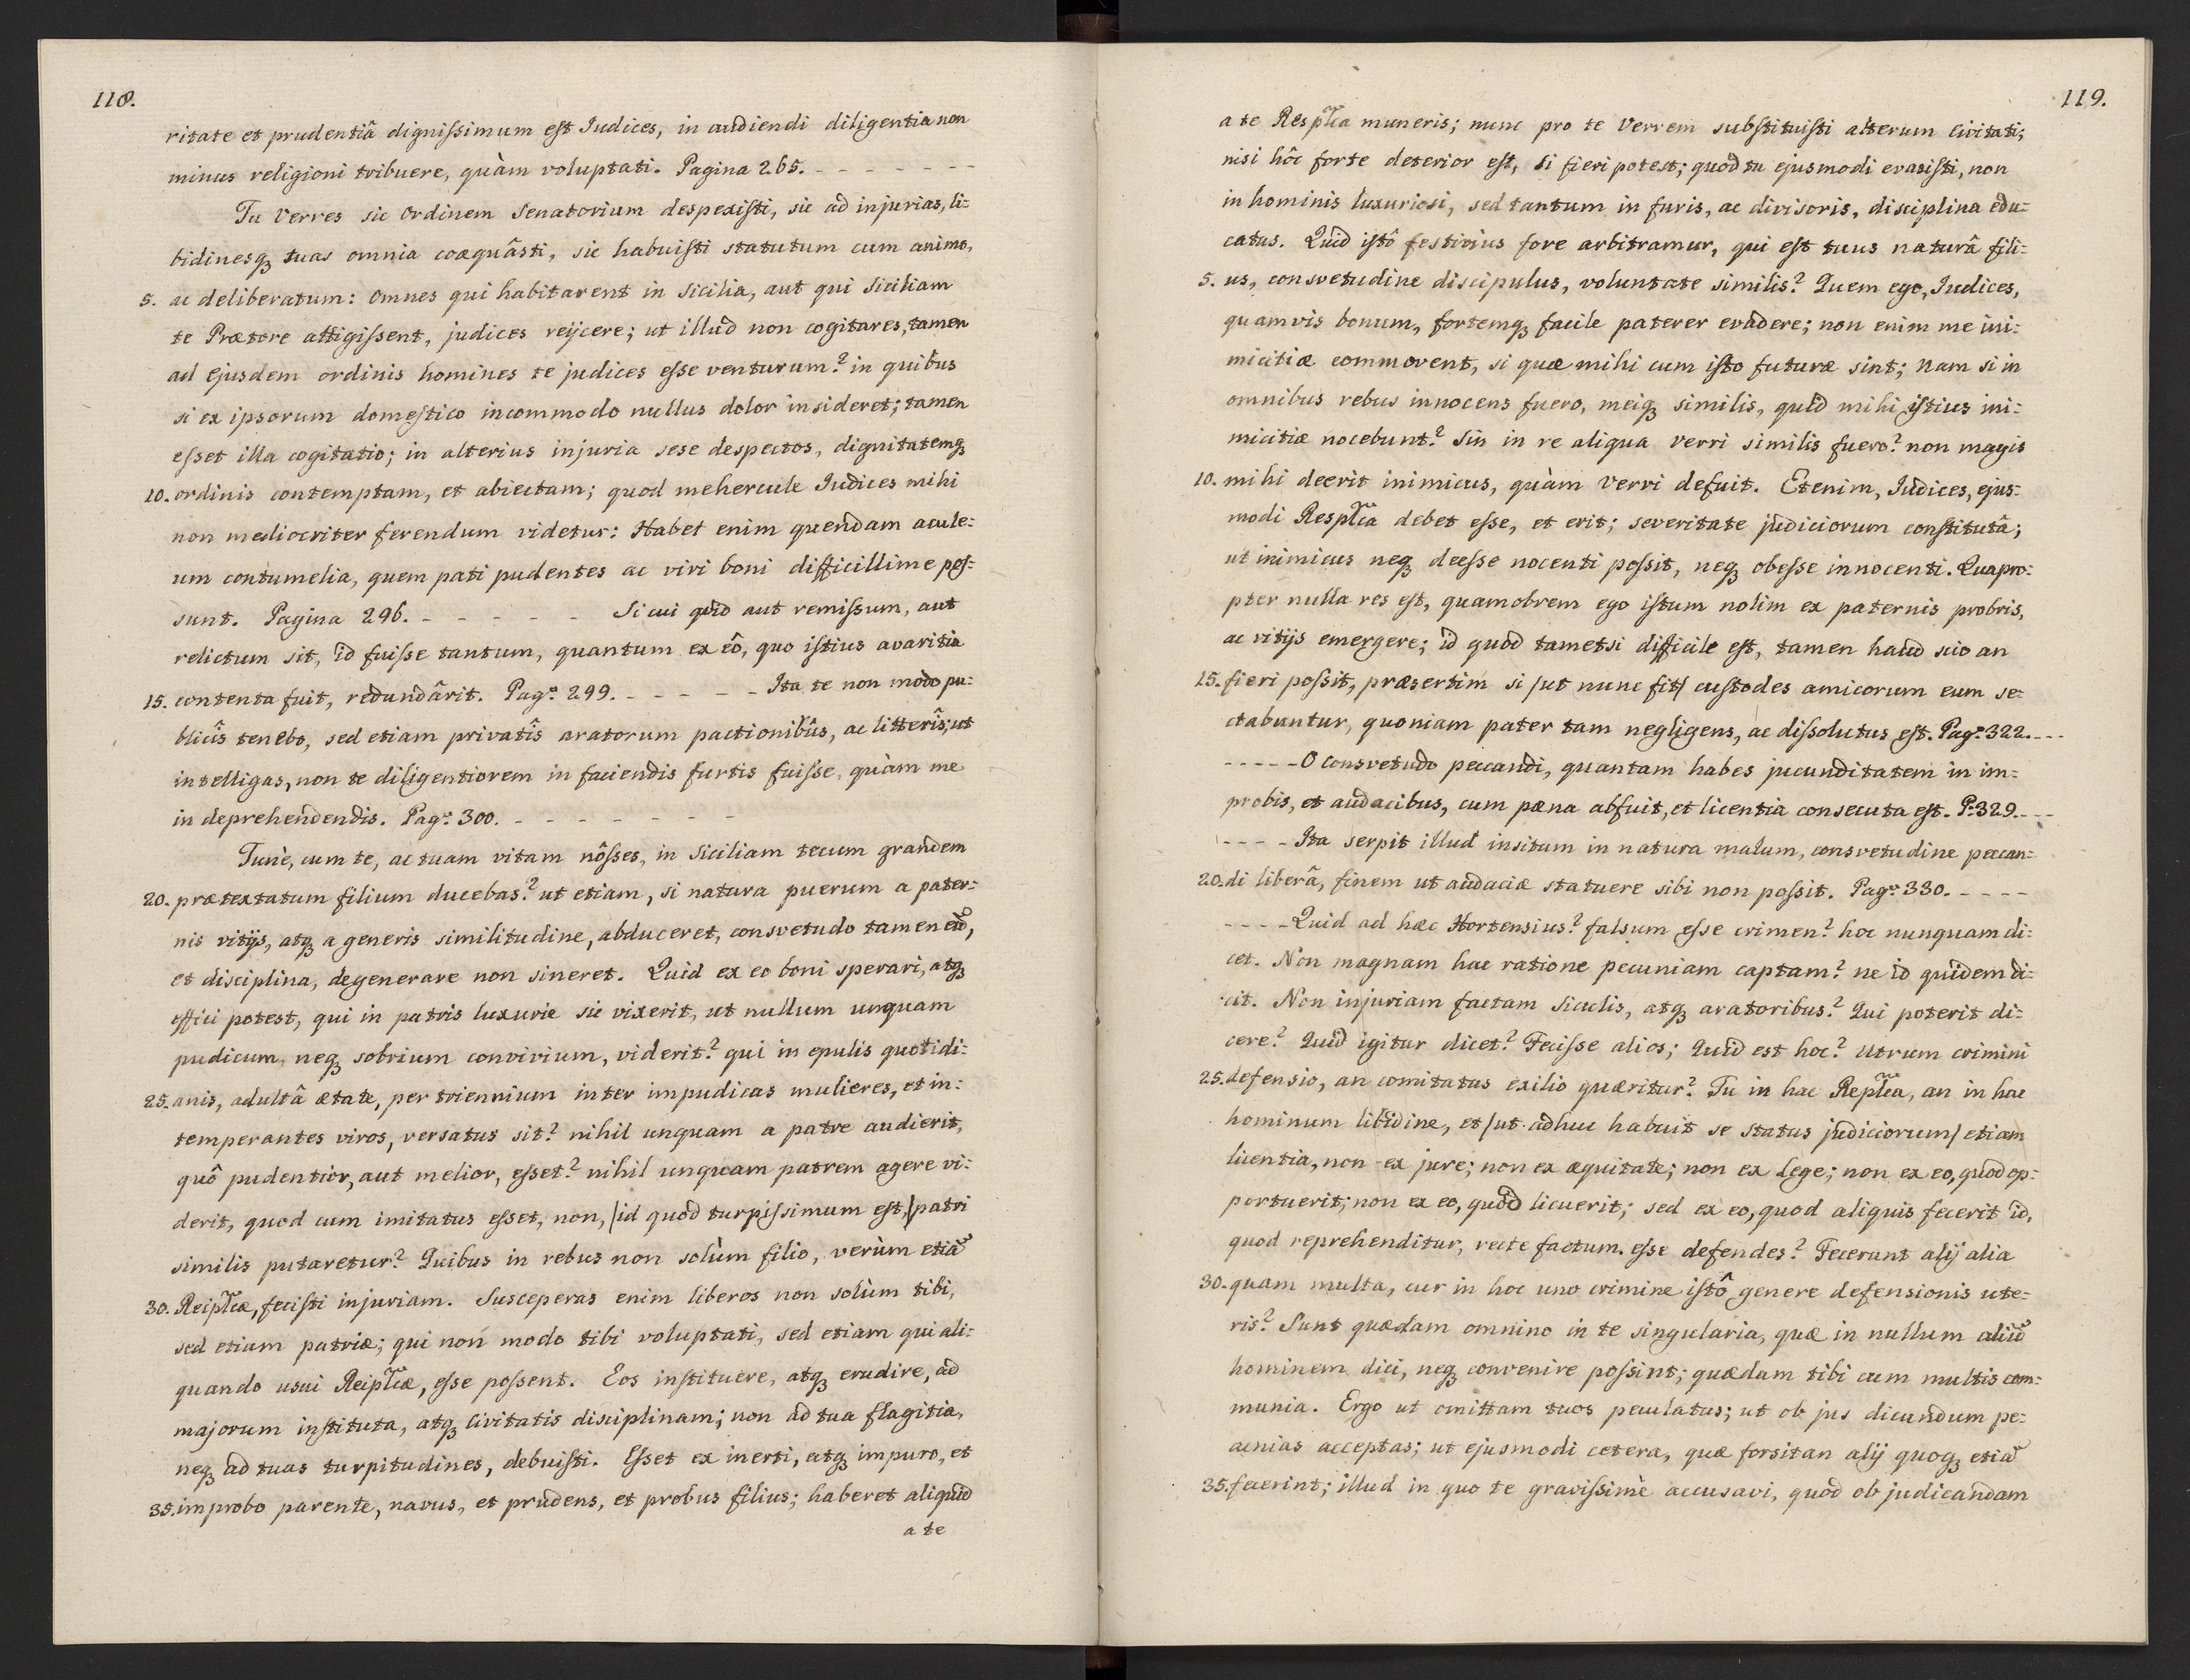 118.
ritate et prudentiâ dignissimum est Iudices, in audiendi diligentia non
minus religioni tribuere, quàm voluptati. Pagina 265. - - - - - -
Tu Verres sic Ordinem Senatorium despexisti, sic ad injurias, li=
bidinesq; tuas omnia coæquâsti, sic habuisti statutum cum animo,
5. ac deliberatum: omnes qui habitarent in Sicilia, aut qui Siciliam
te Prætore attigissent, judices reijcere; ut illud non cogitares, tamen
ad ejusdem ordinis homines te judices esse venturum? in quibus
si ex ipsorum domestico incommodo nullus dolor insideret; tamen
esset illa cogitatio; in alterius injuria sese despectos, dignitatemq;
10. ordinis contemptam, et abiectam; quod mehercule Iudices mihi
non mediocriter ferendum videtur: Habet enim quendam acule=
um contumelia, quem pati pudentes ac viri boni difficillime pos=
sunt. Pagina 296. - - - - - Si cui quid aut remissum, aut
relictum sit, id fuisse tantum, quantum ex eô, quo istius avaritia
15. contenta fuit, redundârit. Pag.ª 299. - - - - - Ita te non modo pu=
blicîs tenebo, sed etiam privatîs aratorum pactionibûs, ac litterîs; ut
intelligas, non te diligentiorem in faciendis furtis fuisse, quàm me
in deprehendendis. Pag.ª 300. - - - - - - -
Tunè, cum te, ac tuam vitam nôsses, in Siciliam tecum grandem
20. prætextatum filium ducebas? ut etiam, si natura puerum a pater=
nis vitijs, atq; a generis similitudine, abduceret, consvetudo tamen eũ,
et disciplina, degenerare non sineret. Quid ex eo boni sperari, atq;
effici potest, qui in patris luxurie sic vixerit, ut nullum unquam
pudicum, neq; sobrium convivium, viderit? qui in epulis quotidi=
25. anis, adultâ ætate, per triennium inter impudicas mulieres, et in=
temperantes viros, versatus sit? nihil unquam a patre audierit,
quô pudentior, aut melior, esset? nihil unquam patrem agere vi=
derit, quod cum imitatus esset, non, /id quod turpissimum est,/ patri
similis putaretur? Quibus in rebus non solùm filio, verùm etiã
30. Reipl̃cæ, fecisti injuriam. Susceperas enim liberos non solùm tibi,
sed etiam patriæ; qui non modo tibi voluptati, sed etiam qui ali=
quando usui Reipl̃cæ, esse possent. Eos instituere, atq; erudire, ad
majorum instituta, atq; civitatis disciplinam; non ad tua flagitia,
neq; ad tuas turpitudines, debuisti. Esset ex inerti, atq; impuro, et
35. improbo parente, navus, et prudens, et probus filius; haberet aliquid
a te
119.
a te Respl̃ca muneris; nunc pro te Verrem substituisti alterum civitati;
nisi hôc forte deterior est, si fieri potest; quod tu ejusmodi evasisti, non
in hominis luxuriosi, sed tantum in furis, ac divisoris, disciplina edu=
catus. Quid istô festivius fore arbitramur, qui est tuus naturâ fili=
5. us, consvetudine discipulus, voluntate similis? Quem ego, Iudices,
quamvis bonum, fortemq; facile paterer evadere; non enim me ini=
micitiæ commovent, si quæ mihi cum isto futuræ sint; Nam si in
omnibus rebus innocens fuero, meiq; similis, quid mihi istius ini=
micitiæ nocebunt? Sin in re aliqua Verri similis fuero? non magis
10. mihi deerit inimicus, quàm Verri defuit. Etenim, Iudices, ejus=
modi Respl̃ca debet esse, et erit; severitate judiciorum constitutâ;
ut inimicus neq; deesse nocenti possit, neq; obesse innocenti. Quapro=
pter nulla res est, quamobrem ego istum nolim ex paternis probris,
ac vitijs emergere; id quod tametsi difficile est, tamen haud scio an
15. fieri possit, præsertim si /ut nunc fit/ custodes amicorum eum se=
ctabuntur, quoniam pater tam negligens, ac dissolutus est. Pag.ª 322. - - -
- - - - - O consvetudo peccandi, quantam habes jucunditatem in im=
probis, et audacibus, cum pæna abfuit, et licentia consecuta est. P.ª 329. - - -
- - - - Ita serpit illud insitum in natura malum, consvetudine peccan=
20. di liberâ, finem ut audaciæ statuere sibi non possit. Pag.ª 330. - - - -
- - - - Quid ad hæc Hortensius? falsum esse crimen? hoc nunquam di=
cet. Non magnam hac ratione pecuniam captam? ne id quidem di=
cit. Non injuriam factam Siculis, atq; aratoribus? Qui poterit di=
cere? Quid igitur dicet? Fecisse alios; Quid est hoc? Utrum crimini
25. defensio, an comitatus exilio quæritur? Tu in hac Repl̃ca, an in hac
hominum libidine, et /ut adhuc habuit se status judiciorum/ etiam
licentia, non ex jure; non ex æquitate; non ex Lege; non ex eo, quod op=
portuerit; non ex eo, quod licuerit; sed ex eo, quod aliquis fecerit id,
quod reprehenditur, recte factum esse defendes? Fecerunt alij alia
30. quam multa, cur in hoc uno crimine istô genere defensionis ute=
ris? Sunt quædam omnino in te singularia, quæ in nullum aliũ
hominem dici, neq; convenire possint; quædam tibi cum multis com=
munia. Ergo ut omittam tuos peculatus; ut ob jus dicundum pe=
cunias acceptas; ut ejusmodi cetera, quæ forsitan alij quoq; etiã
35. fecerint; illud in quo te gravissimè accusavi, quòd ob judicandam